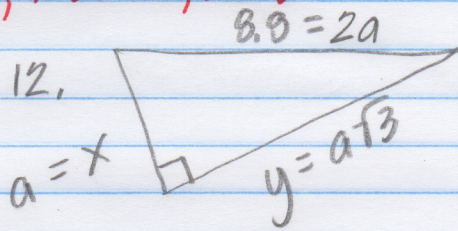 8.9 = 2a
12.
a = x
y = a√3